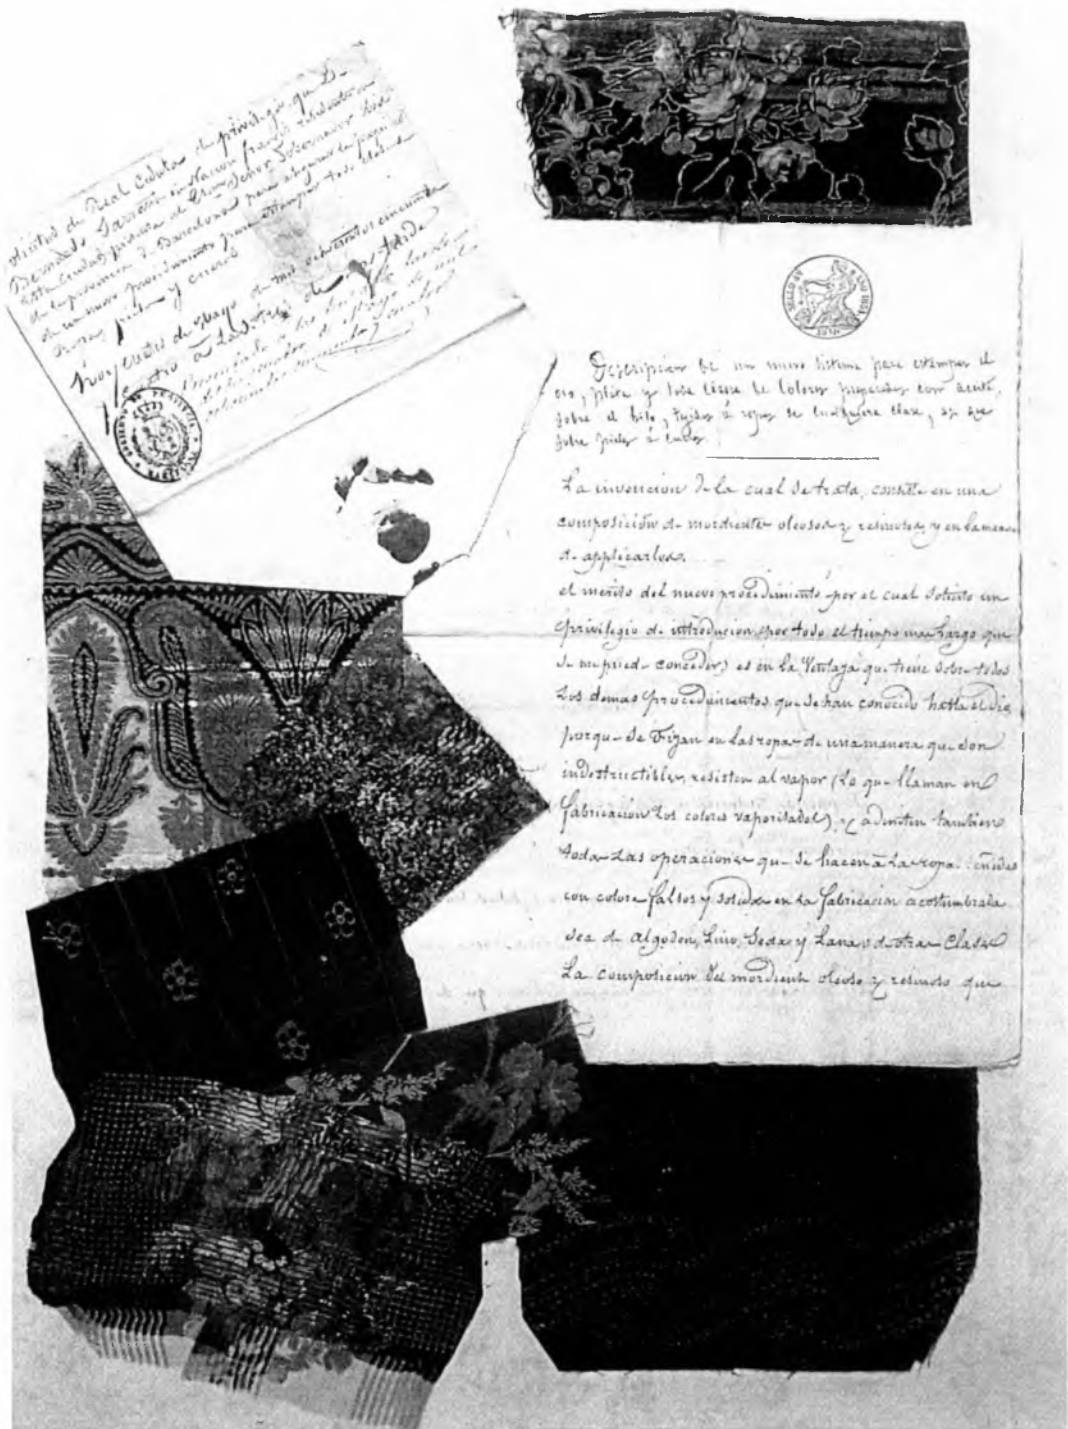 Solicitud de Real Cedula de privilegio que D.
Bernardo nacion frances residente en
esta Ciudad al Exmo Señor Gobernador
de la provincia de Barcelona para
de un nuevo procedimiento para estampar toda clase
y cueros
Hoy cuatro de Mayo de mil ochocientos cincuenta
y cuatro á las tres de la tarde
Presentada á las
de mil
SELLO 4º AÑO 1854
Descripcion de un nuevo sistema para estampar el
oro, plata y toda clase de colores preparados con aceite,
sobre el hilo, tejidos ó ropas de cualquiera clase, asi que
sobre pieles ó cueros.
La invencion de la cual se trata, consiste en una
composición de mordientes oleosos y resinosos y en la manera
de applicarlos.
el mérito del nuevo procedimiento por el cual solicito un
privilegio de introducion (por todo el tiempo mas largo que
se me puede conceder) es en la Ventaja que tiene sobre todos
los demas procedimientos que se han conocido hasta el dia
porque se Fijan en las ropas de una manera que son
indestructibles, resisten al vapor (Lo que llaman en
fabricación Los colores vaporisados), y admiten tambien
todas Las operaciones que se hacen á la ropa
con colores falsos y solidos en la fabricacion acostumbrada
sea de algodon, Lino, Seda y Lana o de otras Clases
La composicion del mordiente oleoso y resinoso que